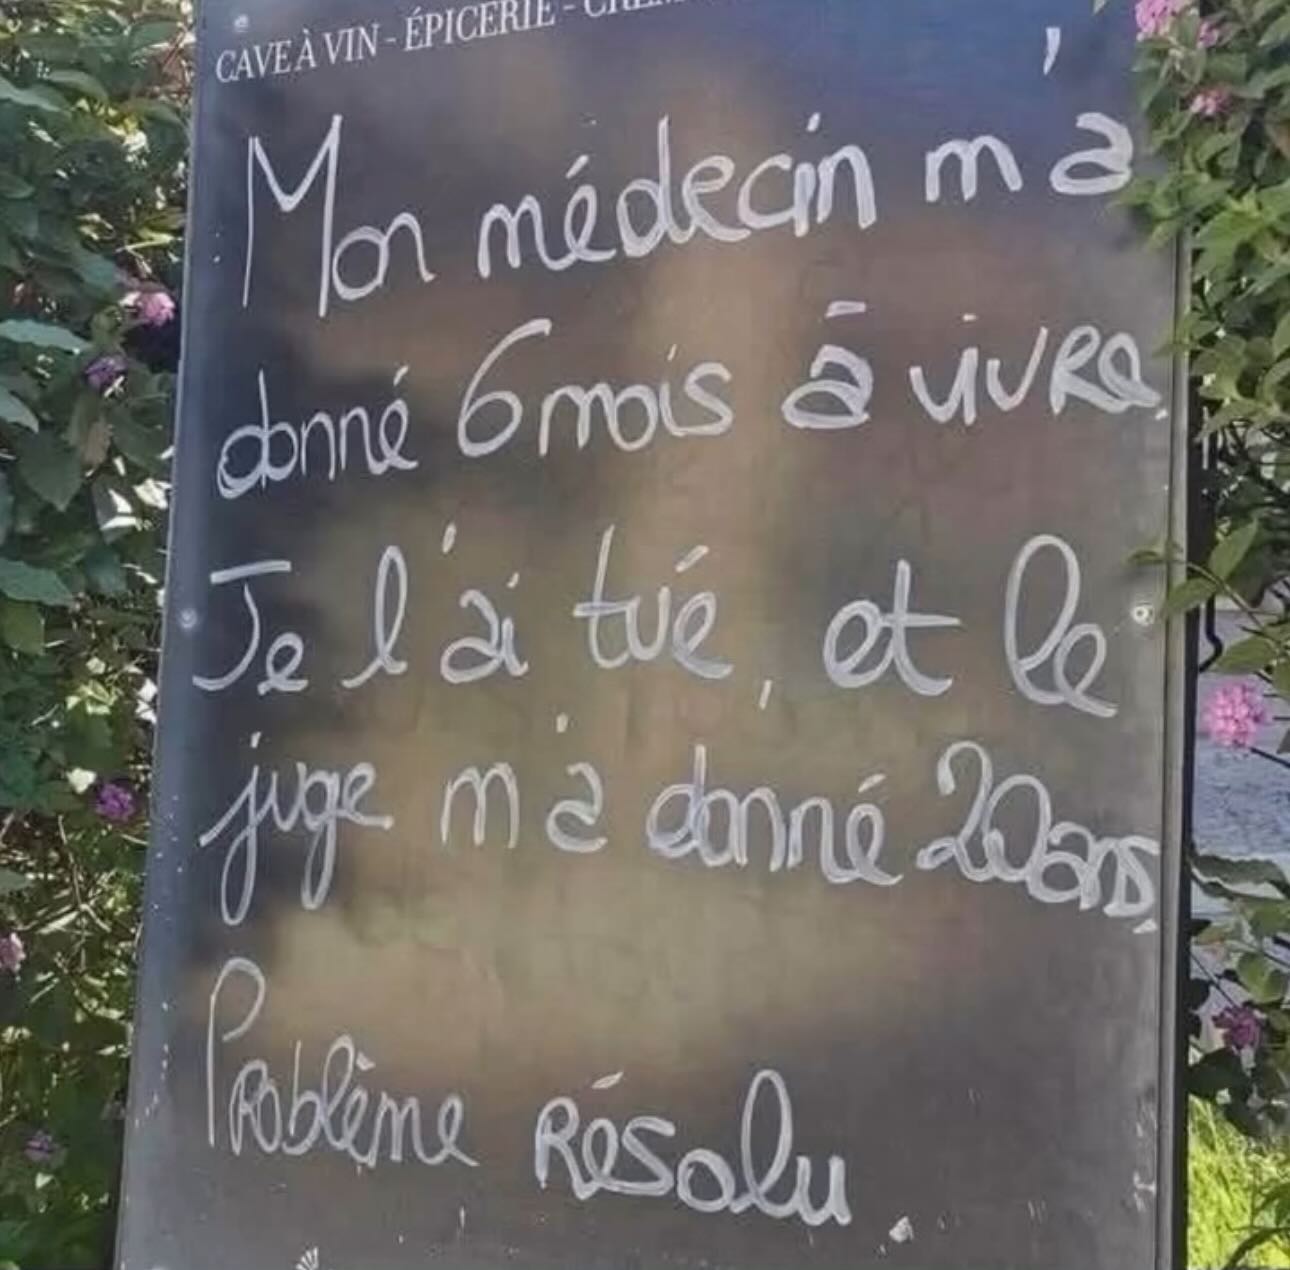 CAVE À VIN - ÉPICERIE -
Mon médecin m'a
donné 6 mois à vivre.
Je l'ai tué, et le
juge m'a donné 20 ans.
Problème résolu.